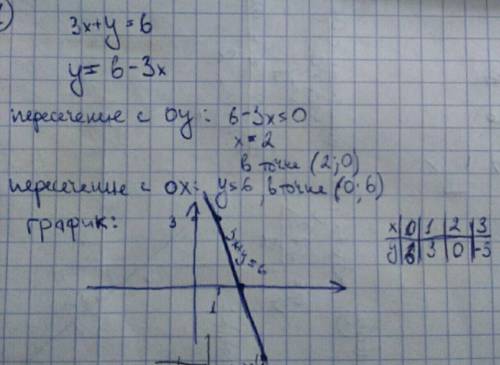 3x+y=6
y=6-3x
пересечение с oy: 6-3x=0
x=2
в точке (2;0)
пересечение с ox: y=6, в точке (0;6)
график:
3
3x+y=6
1
x 0 1 2 3
y 6 3 0 -3